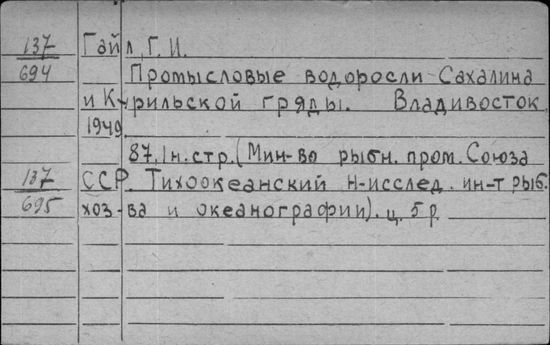 137 Гайл, Г. И.
694 Промысловые водоросли Сахалина
и Курильской гряды. Владивосток,
1949.
87, 1 н. стр. (Мин-во рыбн. пром. Союза
137 ССР. Тихоокеанский н-исслед. ин-т рыб.
695 хоз-ва и океанографии). ц. 5 р.